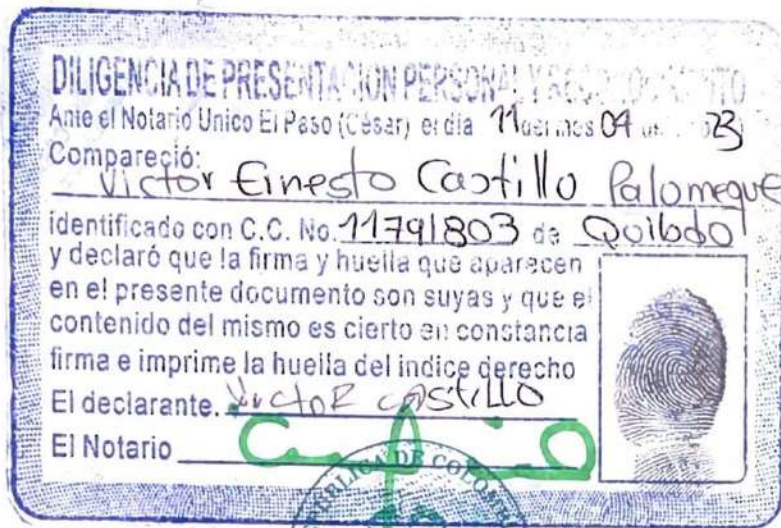 DILIGENCIA DE PRESENTACION PERSONAL Y
Ante el Notario Unico El Paso (César) el día 11 del mes 04 23
Compareció:
Victor Ernesto Castillo Palomeque
identificado con C.C. No. 11791803 de Quibdo
y declaró que la firma y huella que aparecen
en el presente documento son suyas y que el
contenido del mismo es cierto en constancia
firma e imprime la huella del indice derecho
El declarante. Victor Castillo
El Notario
REPUBLICA DE COLOMBIA